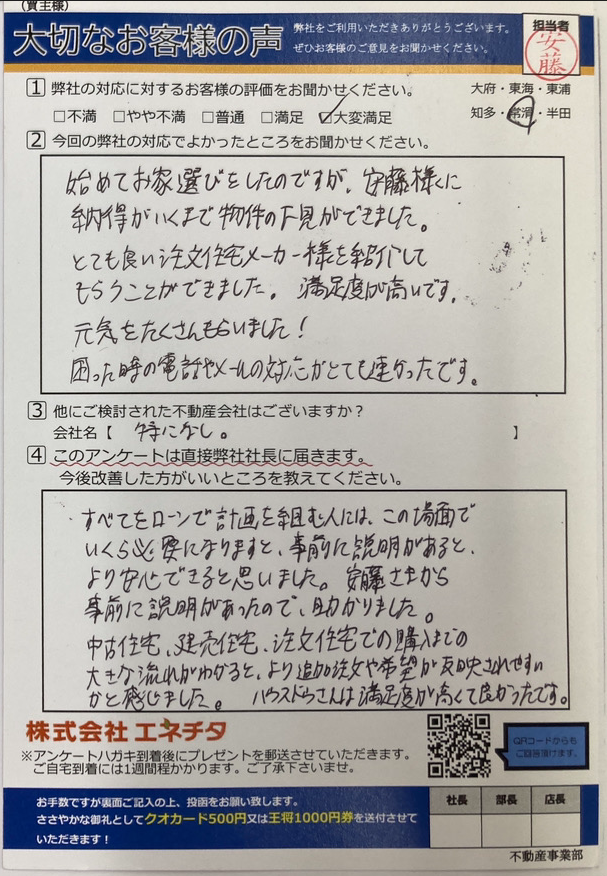 (買主様)
大切なお客様の声
弊社をご利用いただきありがとうございます。
ぜひお客様のご意見をお聞かせください。
担当者
安藤
1 弊社の対応に対するお客様の評価をお聞かせください。
大府・東海・東浦
□不満 □やや不満 □普通 □満足 ☑大変満足
知多・常滑・半田
2 今回の弊社の対応でよかったところをお聞かせください。
始めてお家選びをしたのですが、安藤様に
納得がいくまで物件の下見ができました。
とても良い注文住宅メーカー様を紹介して
もらうことができました。満足度が高いです。
元気をたくさんもらいました!
困った時の電話やメールの対応がとても速かったです。
3 他にご検討された不動産会社はございますか?
会社名【 特になし。 】
4 このアンケートは直接弊社社長に届きます。
今後改善した方がいいところを教えてください。
すべてをローンで計画を組む人には、この場面で
いくら必要になりますと、事前に説明があると、
より安心できると思いました。安藤さまから
事前に説明があったので、助かりました。
中古住宅、建売住宅、注文住宅での購入までの
大きな流れがわかると、より追加注文や希望が反映されやすい
かと感じました。ハウスドゥさんは満足度が高くて良かったです。
株式会社 エネチタ
QRコードからも
ご回答頂けます。
※アンケートハガキ到着後にプレゼントを郵送させていただきます。
ご自宅到着には1週間程かかります。ご了承下さいませ。
お手数ですが裏面ご記入の上、投函をお願い致します。
ささやかな御礼としてクオカード500円又は王将1000円券を送付させて
いただきます!
社長 部長 店長
不動産事業部